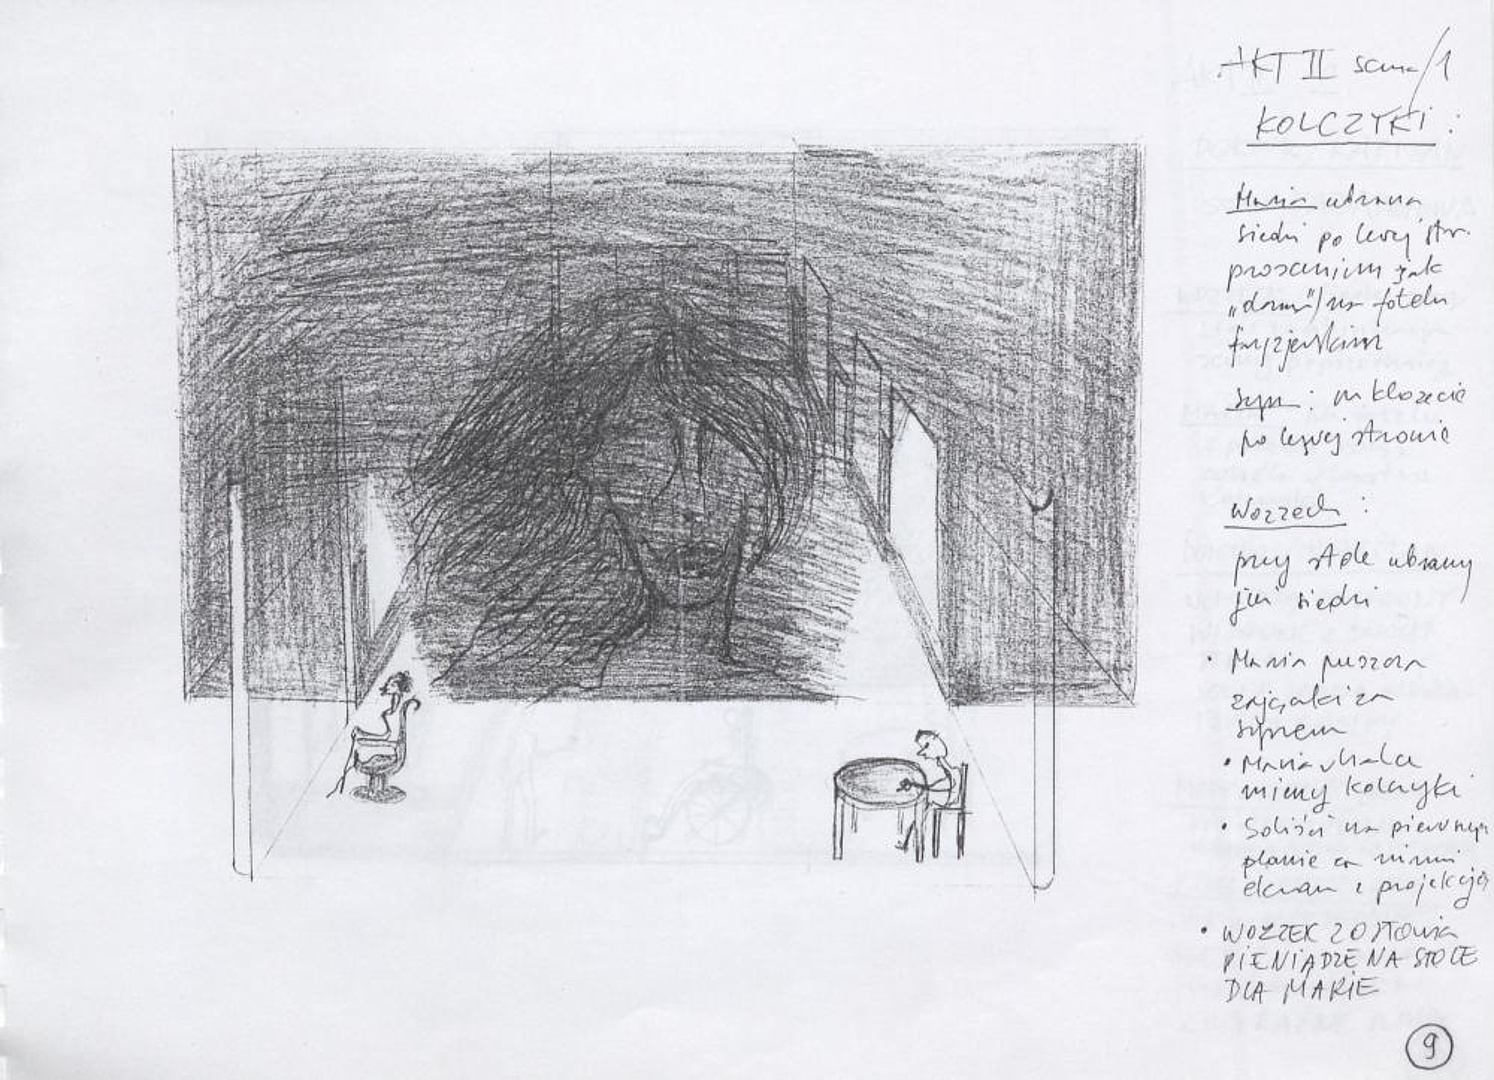 AKT II scena/1
KOLCZYKI:
Maria ubrana
siedzi po lewej str.
proscenium jak
„dama”/na fotelu
fryzjerskim
Syn: na klozecie
po lewej stronie
Wozzeck:
przy stole ubrany
już siedzi
• Maria puszcza
zajączki za
synem
• Maria
mierzy kolczyki
• Soliści na pierwszym
planie za nimi
ekran z projekcją
• WOZZEK ZOSTAWIA
PIENIĄDZE NA STOLE
DLA MARIE
9